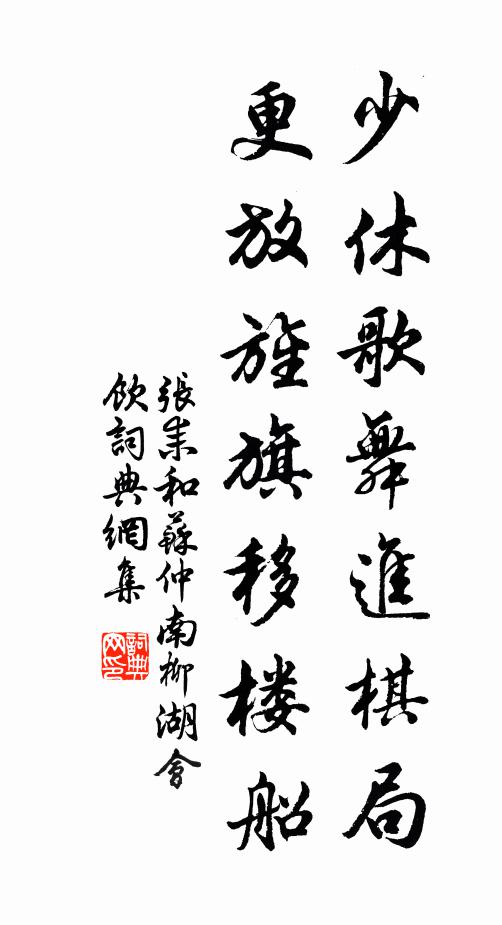 少休歌舞進棋局
更放旌旗移楼船
張耒和蘇仲南柳湖會
飲詞典網集
詞典
网印